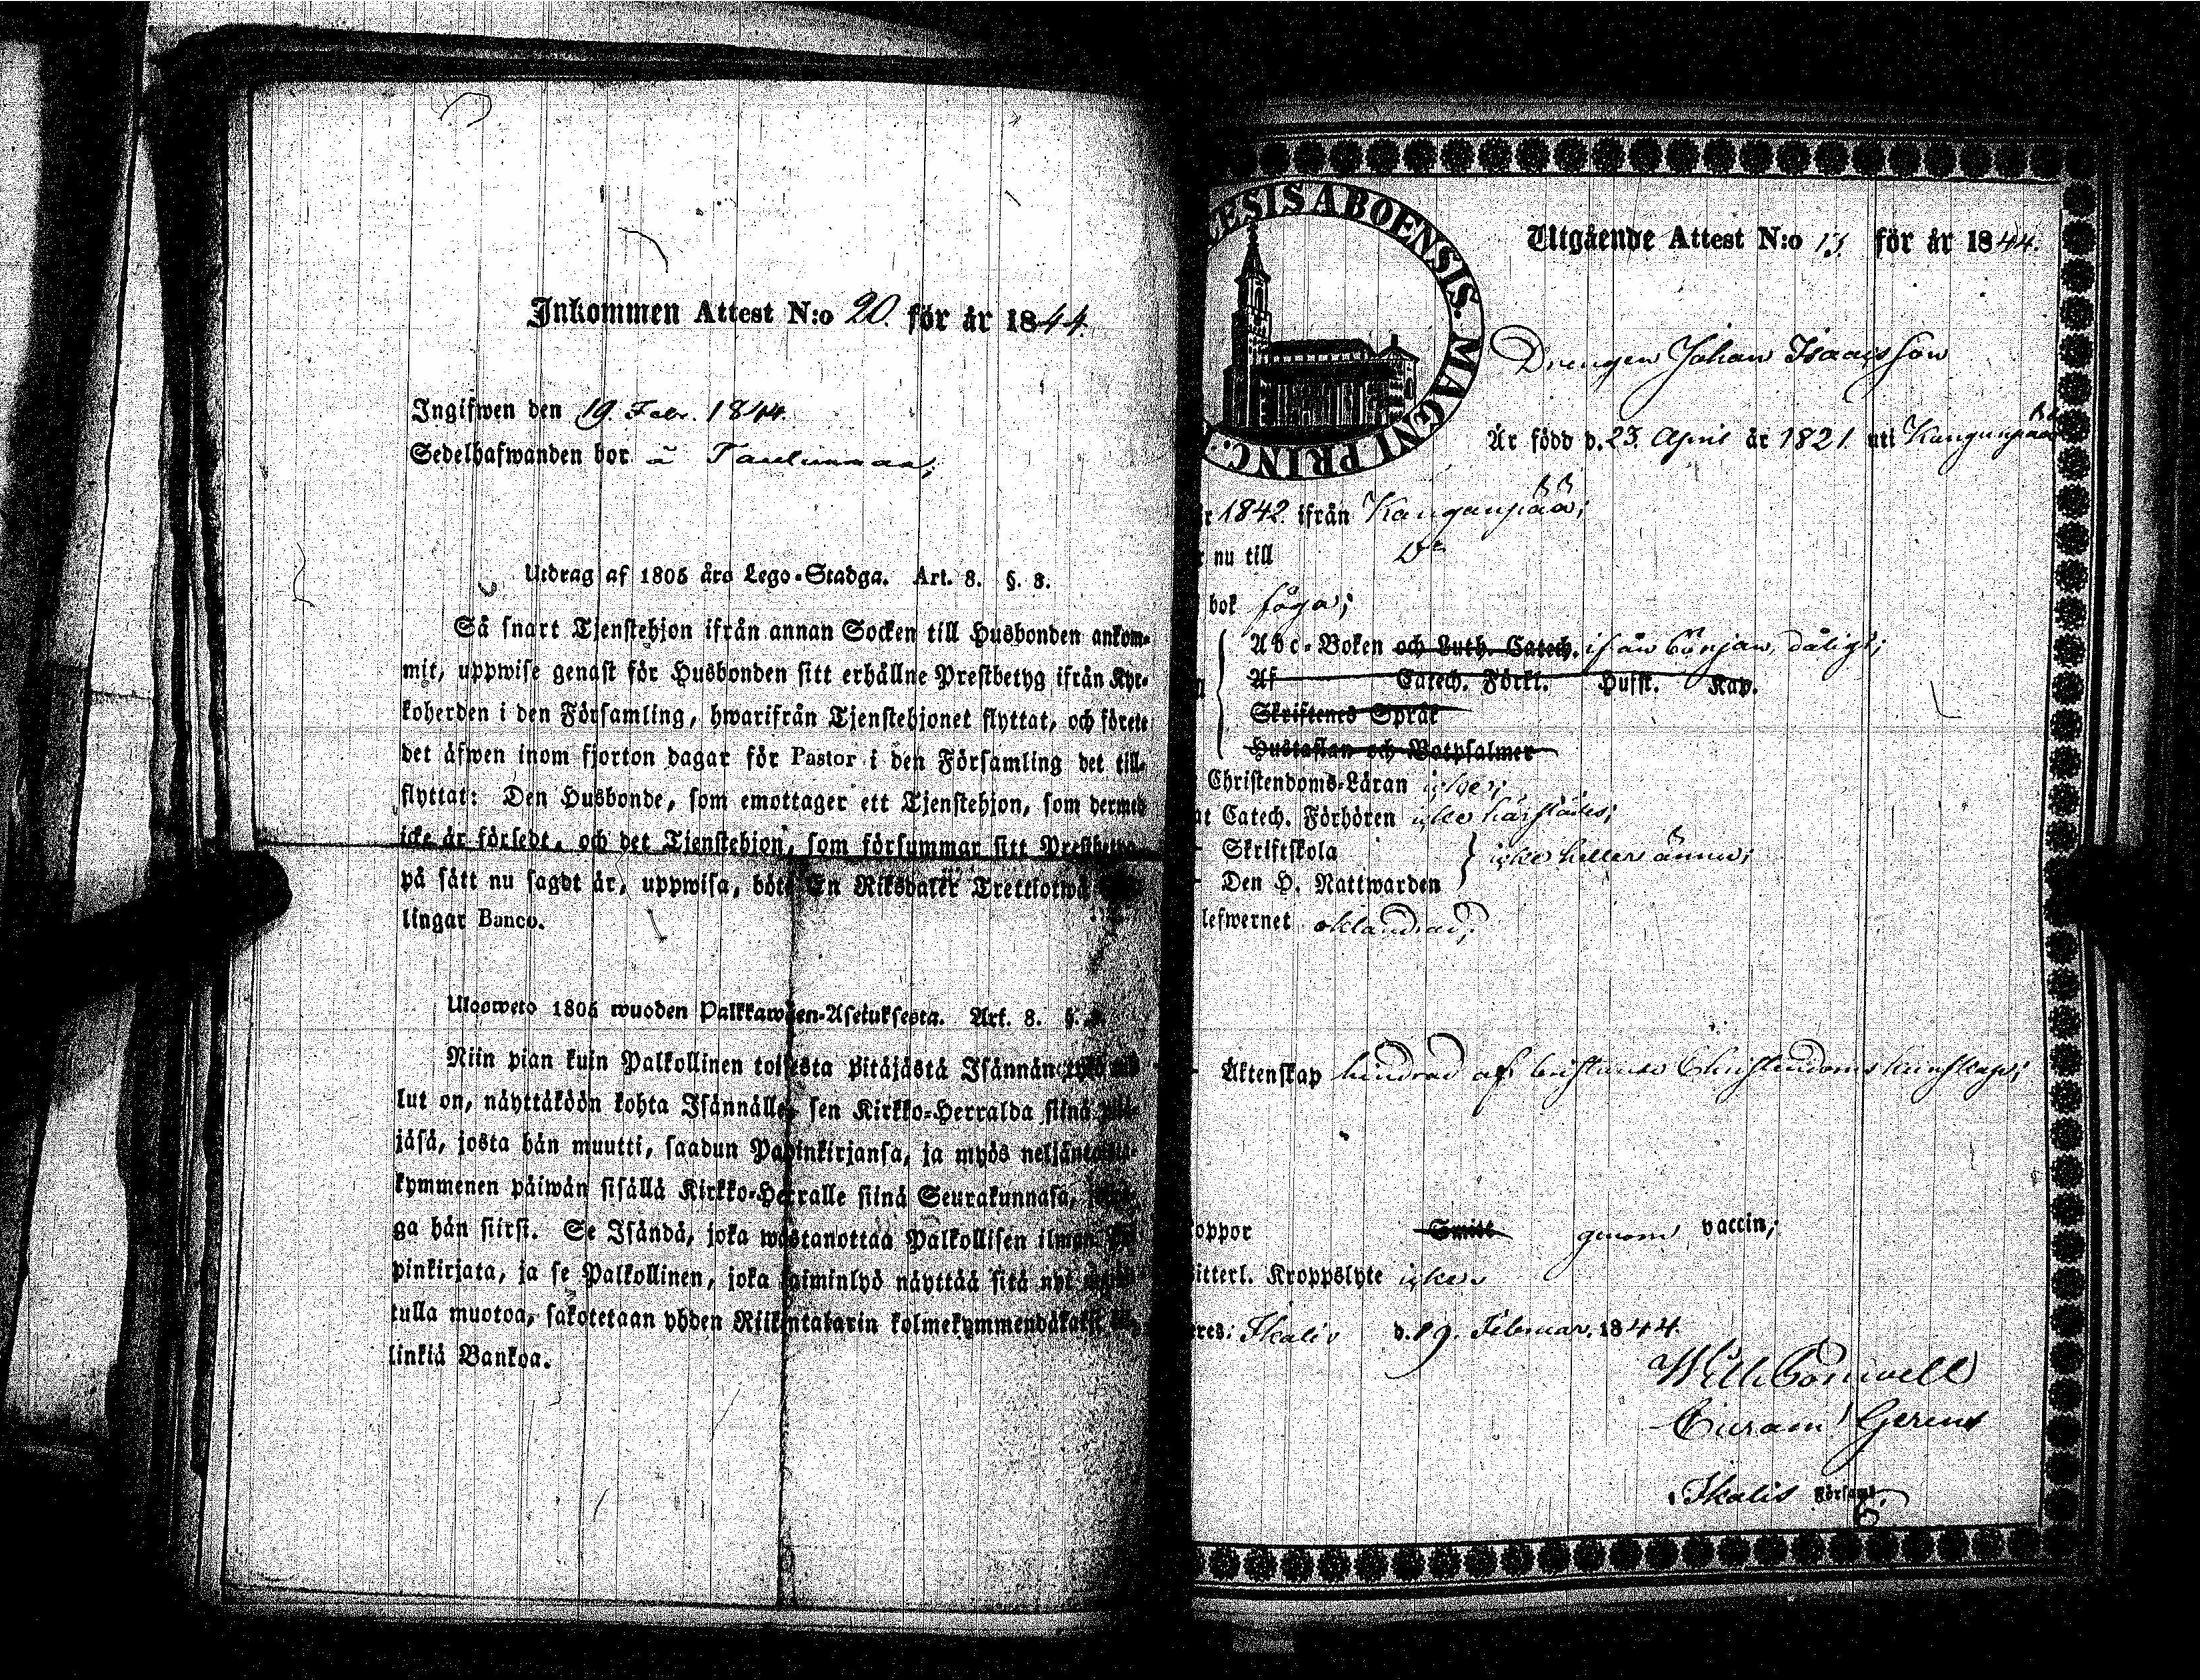 Inkommen Attest N:o 20. för år 1844.
Ingifwen den 19 Febr. 1844.
Sedelhafwanden bor å
Utdrag af 1805 års Lego-Stadga. Art. 8. §. 8.
Så snart Tjenstehjon ifrån annan Socken till Husbonden ankom-
mit, uppwise genast för Husbonden sitt erhållne Prestbetyg ifrån Kyr-
koherden i den Församling, hwarifrån Tjenstehjonet flyttat, och förete
det äfwen inom fjorton dagar för Pastor i den Församling det till-
flyttat: Den Husbonde, som emottager ett Tjenstehjon, som dermed
icke är försedt, och det Tjenstehjon, som försummar sitt Prestbetyg
på sätt nu sagdt är, uppwisa, böte En Riksdaler Trettiotwå
lingar Banco.
Ulosweto 1805 wuoden Palkkawäen-Asetuksesta. Art. 8. §.
Niin pian kuin Palkollinen toisesta Pitäjästä Isännän
lut on, näyttäköön kohta Isännälle, sen Kirkko-Herralda siinä
jäsä, josta hän muutti, saadun Papinkirjansa, ja myös
kymmenen päiwän sisällä Kirkko-Herralle siinä Seurakunnasa,
ga hän siirsi. Se Isändä, joka wastanottaa Palkollisen ilman
pinkirjata, ja se Palkollinen, joka laiminlyö näyttää sitä nyt
tulla muotoa, sakotetaan yhden Riikintalarin kolmekymmendäkaksi
linkiä Bankoa.
ESIS ABOENSIS. MAGNI PRINC.
Utgående Attest N:o 13. för år 1844.
Drengen Johan Isaacsson
Är född d. 23. April år 1821. uti Kanganpää
år 1842. ifrån Kanganpää;
nu till D:o
bok föga;
Abc-Boken och Luth. Catech. ifrån början, dåligt;
Af Catech. Förkl. Hufst. Kap.
Skriftenes Språk
Hustaflan och Botpsalmer
Christendoms-Läran icke;
Catech. Förhören icke
Skriftskola
icke heller ännu;
Den H. Nattwarden
lefwernet oklandrad;
Äktenskap hindrad af bristande Christendoms kunskap;
oppor Smitt genom vaccin;
itterl. Kroppslyte icke.
Ikalis d. 19. Februar. 1844.
Curam Gerens
i Ikalis Förs